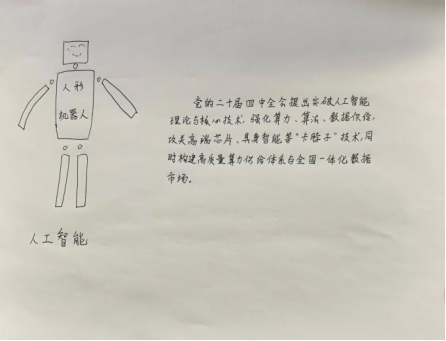 人形
机器人
人工智能
党的二十届四中全会提出突破人工智能
理论与核心技术，强化算力、算法、数据供给，
攻关高端芯片、具身智能等“卡脖子”技术，同
时构建高质量算力供给体系与全国一体化数据
市场。